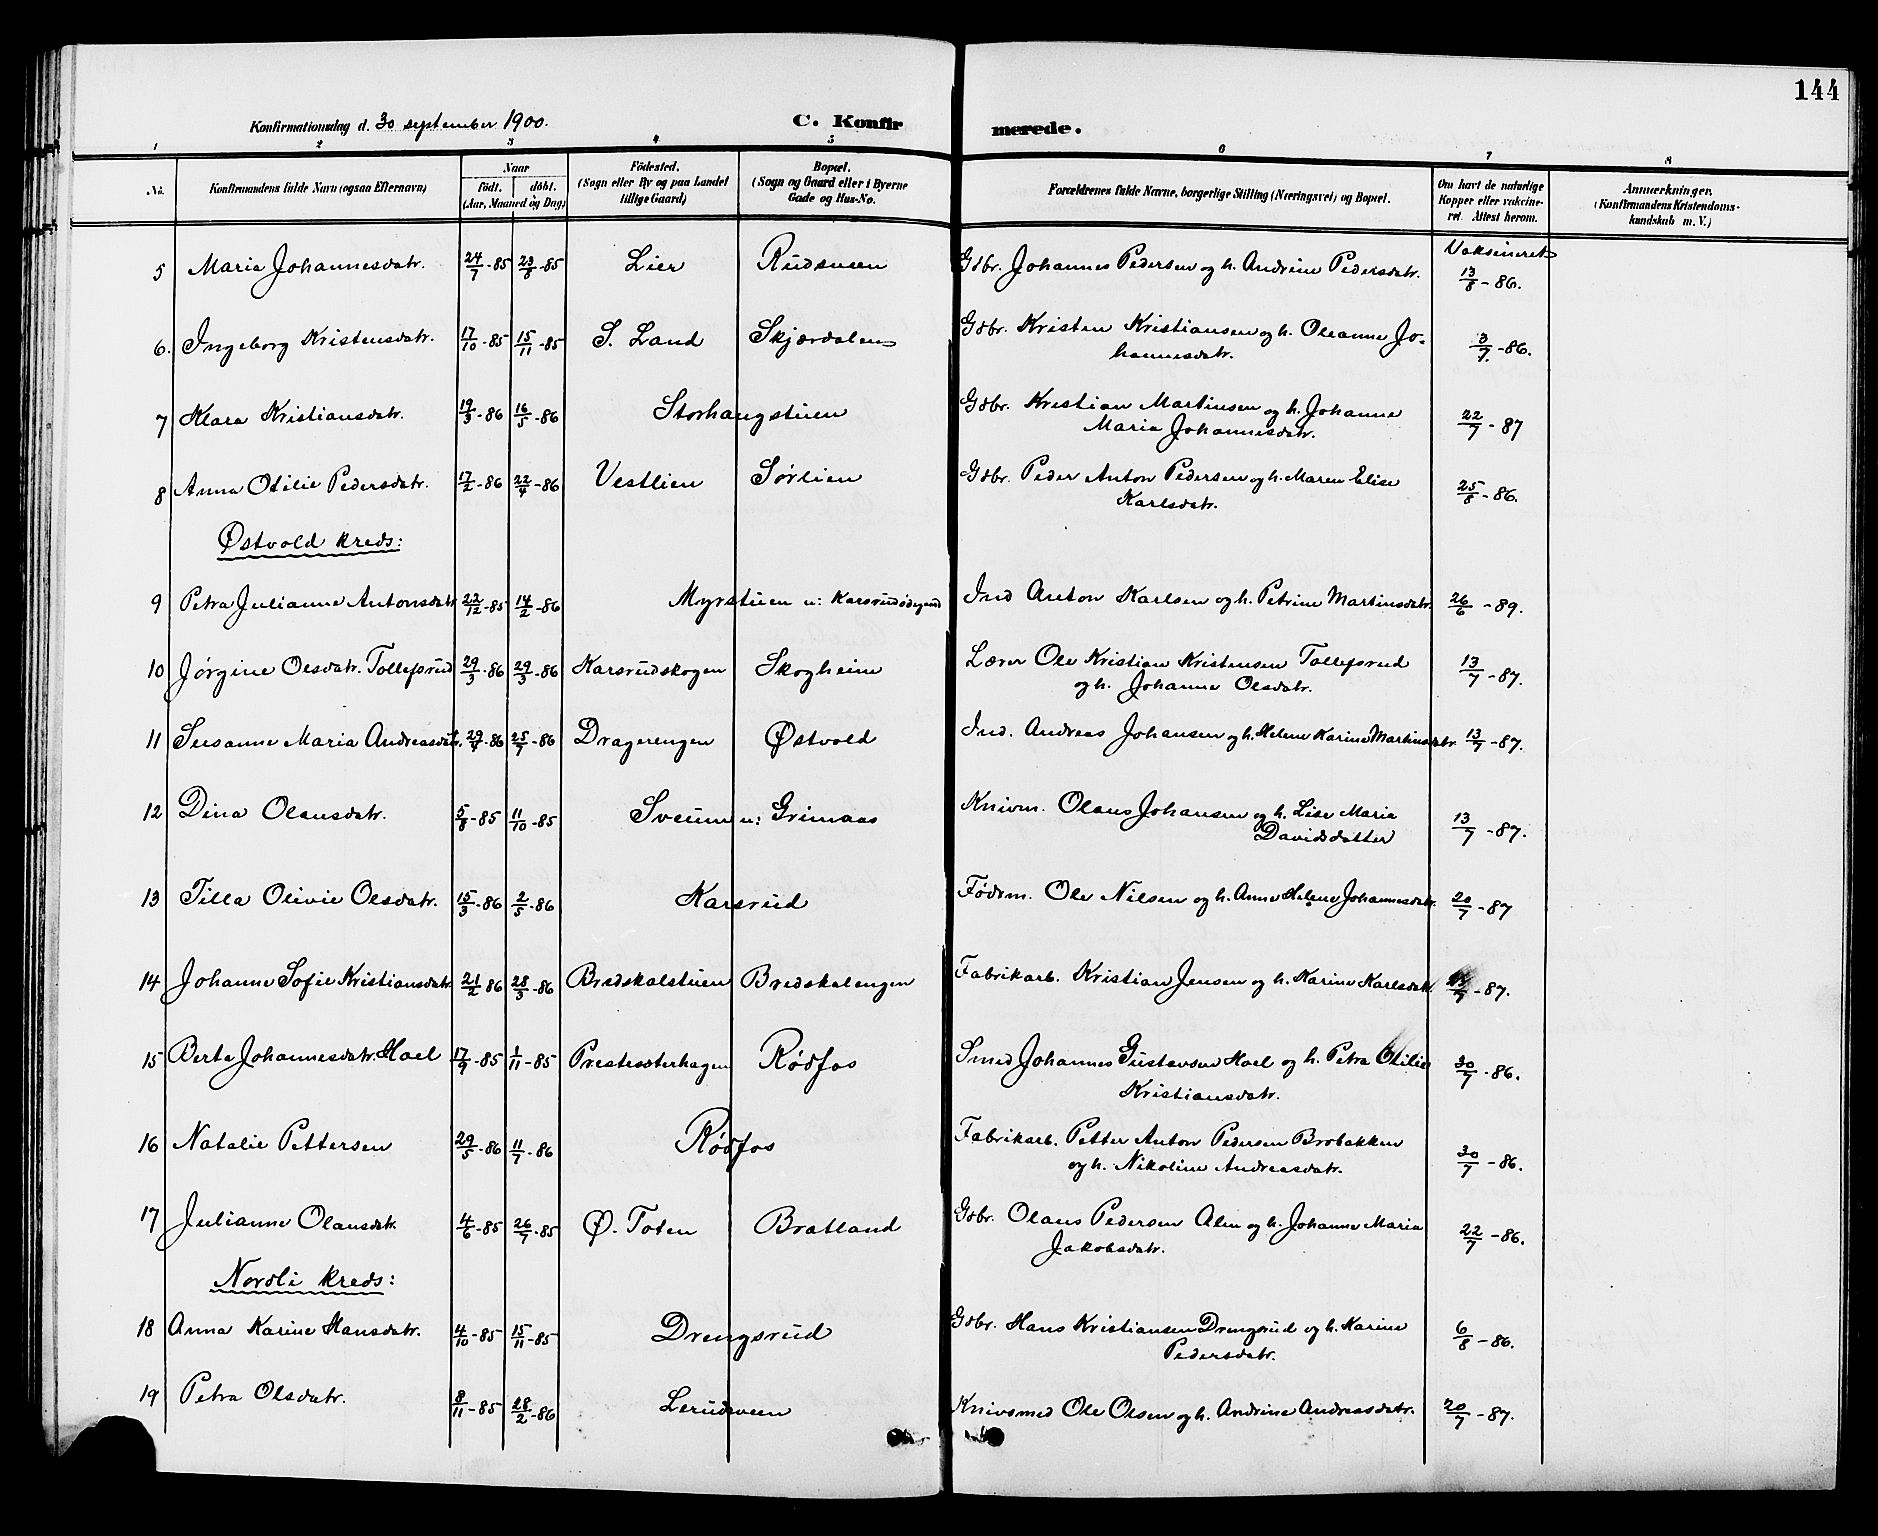 144
Konfirmationsdag d. 30 september 1900.
C. Konfirmerede.
1 2 3 4 5 6 7 8
No. Konfirmandens fulde Navn (ogsaa Efternavn) Naar födt. döbt. (Aar, Maaned og Dag) Födested. (Sogn eller By og paa Landet tillige Gaard) Bopæl. (Sogn og Gaard eller i Byerne Gade og Hus-No. Forældrenes fulde Navne, borgerlige Stilling (Næringsvei) og Bopæl. Om havt de naturlige Kopper eller vakcineret. Attest herom. Anmærkninger. (Konfirmandens Kristendomskundskab m. V.)
Vaksineret
5 Maria Johannesdatr. 24/7-85 23/8-85 Lier Rudsveen Gdbr. Johannes Pedersen og h. Andrine Pedersdatr. 13/8-86.
6. Ingeborg Kristensdatr. 17/10-85 15/11-85 S. Land Skjærdalen Gdbr. Kristen Kristiansen og h. Oleanne Jo-
hannesdatr. 3/7.-86.
7 Klara Kristiansdatr. 19/3-86 16/5-86 Storhaugstuen Gdbr. Kristian Martinsen og h. Johanne
Maria Johannesdatr. 22/7-87
8 Anna Otilie Pedersdatr. 17/2-86 22/4-86 Vestlien Sørlien Gdbr. Peder Anton Pedersen og h. Maren Elise
Karlsdatr. 25/8-86.
Østvold kreds:
9 Petra Julianne Antonsdatr 22/12-85 14/2-86 Myrstuen u: Karsrudødegaard Ind Anton Karlsen og h. Petrine Martinsdatr. 26/6-89.
10 Jørgine Olsdatr. Tollefsrud 29/3-86 29/3-86 Karsrudskogen Skogheim Lærer Ole Kristian Kristensen Tollefsrud
og h. Johanne Olsdatr. 13/7-87.
11 Susanne Maria Andreasdatr. 29/4-86 25/7-86 Dragerengen Østvold Ind. Andreas Johansen og h. Helene Karine Martinsdatr. 13/7-87.
12 Dina Olausdatr. 5/8-85 11/10-85 Sveum u: Grimaas Knivm. Olaus Johansen og h. Lise Maria
Davidsdatter 13/7-87.
13 Tilla Olivie Olsdatr. 15/3-86 2/5-86 Karsrud Fødrm. Ole Nilsen og h. Anne Helene Johannesdatr. 20/7-87
14 Johanne Sofie Kristiansdatr 21/2 86 28/3-86 Bredskalstuen Bredskalengen Fabrikarb. Kristian Jensen og h. Karine Karlsdatr. -87.
15 Berta Johannesdatr. Hoel 17/9-85 1/11-85 Prestesæterhagen Rødfos Smed Johannes Gustavsen Hoel og h. Petra Otilie
Kristiansdatr. 30/7-86.
16 Natalie Pettersen 29/5-86 11/7-86 Rødfos Fabrikarb. Petter Anton Pedersen Brobakken
og h. Nikoline Andreasdatr. 30/7-86.
17 Julianne Olausdatr. 4/6-85 26/7-85 Ø. Toten Bratland Gdbr. Olaus Pedersen Alm og h. Johanne Maria
Jakobsdatr. 22/7-86.
Nordli kreds:
18 Anna Karine Hansdatr. 4/10-85 15/11-85 Drengsrud Gdbr. Hans Kristiansen Drengsrud og h. Karine
Pedersdatr. 6/8-86.
19 Petra Olsdatr. 8/11-85 28/2-86 Lerudsveen Knivsmed Ole Olsen og h. Andrine Andreasdatr. 20/7-87.